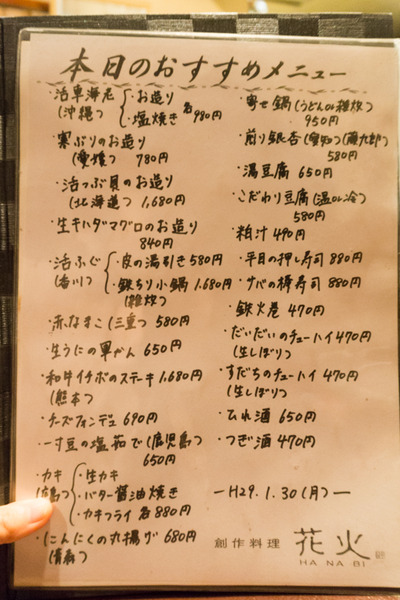 本日のおすすめメニュー
・活車海老(沖縄)
・お造り
・塩焼き 各980円
・寒ぶりのお造り
(愛媛) 780円
・活つぶ貝のお造り
(北海道) 1,680円
・生キハダマグロのお造り
840円
・活ふぐ(香川)
・皮の湯引き580円
・鉄ちり小鍋 1,680円
(雑炊)
・赤なまこ(三重) 580円
・生うにの軍かん 650円
・和牛イチボのステーキ 1,680円
(熊本)
・チーズフォンデュ 690円
・一寸豆の塩茹で(鹿児島)
650円
・カキ(広島)
・生カキ
・バター醤油焼き
・カキフライ 各880円
・にんにくの丸揚げ 680円
(青森)
・寄せ鍋(うどんor雑炊)
950円
・煎り銀杏(愛知)(藤九郎)
580円
・湯豆腐 650円
・こだわり豆腐(温or冷)
580円
・粕汁 490円
・平目の押し寿司 880円
・サバの棒寿司 880円
・鉄火巻 470円
・だいだいのチューハイ 470円
(生しぼり)
・すだちのチューハイ 470円
(生しぼり)
・ひれ酒 650円
・つぎ酒 470円
—H29.1.30(月)—
創作料理 花火
HANABI